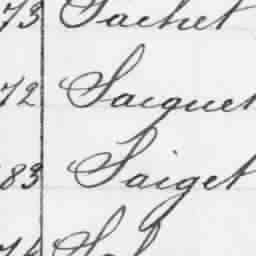 73 Sachet
72 Sacquet
83 Saiget